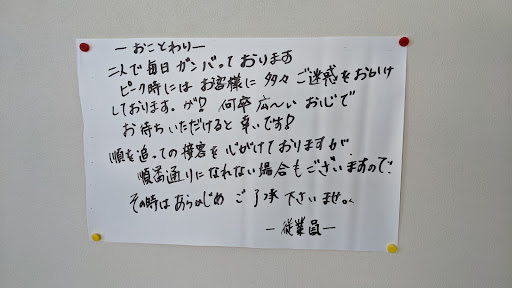 ー おことわり ー
二人で毎日ガンバっております
ピーク時にはお客様に多々ご迷惑をおかけ
しております。が! 何卒広〜い おじで
お待ちいただけると幸いです!
順を追っての接客を心がけておりますが、
順番通りになれない場合もございますので、
その時はあらかじめ ご了承下さいませ。
ー従業員ー